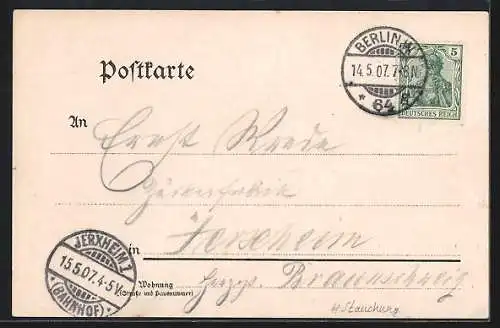 BERLIN.N.
14.5.07.7-8N
* 64 *
5
DEUTSCHES REICH
Postkarte
An
Ernst Wrede
in Jerxheim
Wohnung
(Straße und Hausnummer)
Herzgt. Braunschweig
JERXHEIM 1
15.5.07.4-5V.
(BAHNHOF)